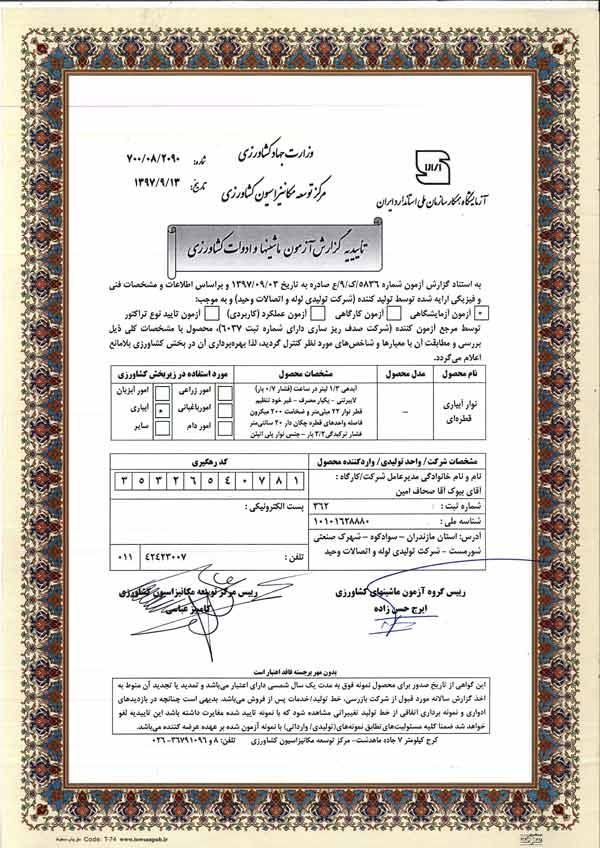 وزارت جهاد کشاورزی
مرکز توسعه مکانیزاسیون کشاورزی
شماره: ۷۰۰/۰۸/۲۰۹۰
تاریخ: ۱۳۹۷/۹/۱۳
آزمایشگاه همکار سازمان ملی استاندارد ایران
تاییدیه گزارش آزمون ماشینها و ادوات کشاورزی
به استناد گزارش آزمون شماره ۵۸۳۶/ک/۹/ع صادره به تاریخ ۱۳۹۷/۰۹/۰۳ و براساس اطلاعات و مشخصات فنی
و فیزیکی ارایه شده توسط تولید کننده (شرکت تولیدی لوله و اتصالات وحید) و به موجب:
آزمون آزمایشگاهی آزمون کارگاهی آزمون عملکرد (کاربردی) آزمون تایید نوع تراکتور
توسط مرجع آزمون کننده (شرکت صدف ریز ساری دارای شماره ثبت ۶۰۳۷)، محصول با مشخصات کلی ذیل
بررسی و مطابقت آن با معیارها و شاخص‌های مورد نظر کنترل گردید، لذا بهره‌برداری آن در بخش کشاورزی بلامانع
اعلام می‌گردد.
نام محصول مدل محصول مشخصات محصول مورد استفاده در زیربخش کشاورزی
نوار آبیاری
قطره‌ای
–
آبدهی ۱/۳ لیتر در ساعت (فشار ۰/۷ بار)
لابیرنتی - یکبار مصرف - غیر خود تنظیم
قطر نوار ۲۲ میلی‌متر و ضخامت ۲۰۰ میکرون
فاصله واحدهای قطره چکان دار ۲۰ سانتی‌متر
فشار ترکیدگی ۲/۲ بار - جنس نوار پلی اتیلن
امور زراعی امور آبزیان
امور باغبانی آبیاری
امور دام سایر
مشخصات شرکت/ واحد تولیدی/ واردکننده محصول کد رهگیری
نام و نام خانوادگی مدیرعامل شرکت/کارگاه :
آقای بیوک آقا صحاف امین
۳ ۵ ۳ ۲ ۶ ۵ ۴ ۰ ۷ ۸ ۱
شماره ثبت : ۳۶۲
پست الکترونیکی :
شناسه ملی : ۱۰۱۰۱۶۲۸۸۸۰
آدرس: استان مازندران – سوادکوه – شهرک صنعتی
شورمست - شرکت تولیدی لوله و اتصالات وحید
تلفن : ۴۲۴۲۳۰۰۷ ۰۱۱
رییس گروه آزمون ماشینهای کشاورزی
ایرج حسن زاده
رییس مرکز توسعه مکانیزاسیون کشاورزی
کامبیز عباسی
بدون مهر برجسته فاقد اعتبار است
این گواهی از تاریخ صدور برای محصول نمونه فوق به مدت یک سال شمسی دارای اعتبار می‌باشد و تمدید یا تجدید آن منوط به
اخذ گزارش سالانه مورد قبول از شرکت بازرسی، خط تولید/خدمات پس از فروش می‌باشد. بدیهی است چنانچه در بازدیدهای
ادواری و نمونه برداری اتفاقی از خط تولید تغییراتی مشاهده شود که با نمونه تایید شده مغایرت داشته باشد این تاییدیه لغو
خواهد شد ضمنا کلیه مسئولیت‌های تطابق نمونه‌های (تولیدی/ وارداتی) با نمونه آزمون شده بر عهده عرضه کننده می‌باشد.
کرج کیلومتر ۷ جاده ماهدشت- مرکز توسعه مکانیزاسیون کشاورزی تلفن: ۸ و ۳۶۷۹۱۰۹۶- ۰۲۶
Code: T-74 www.tomsaapub.ir